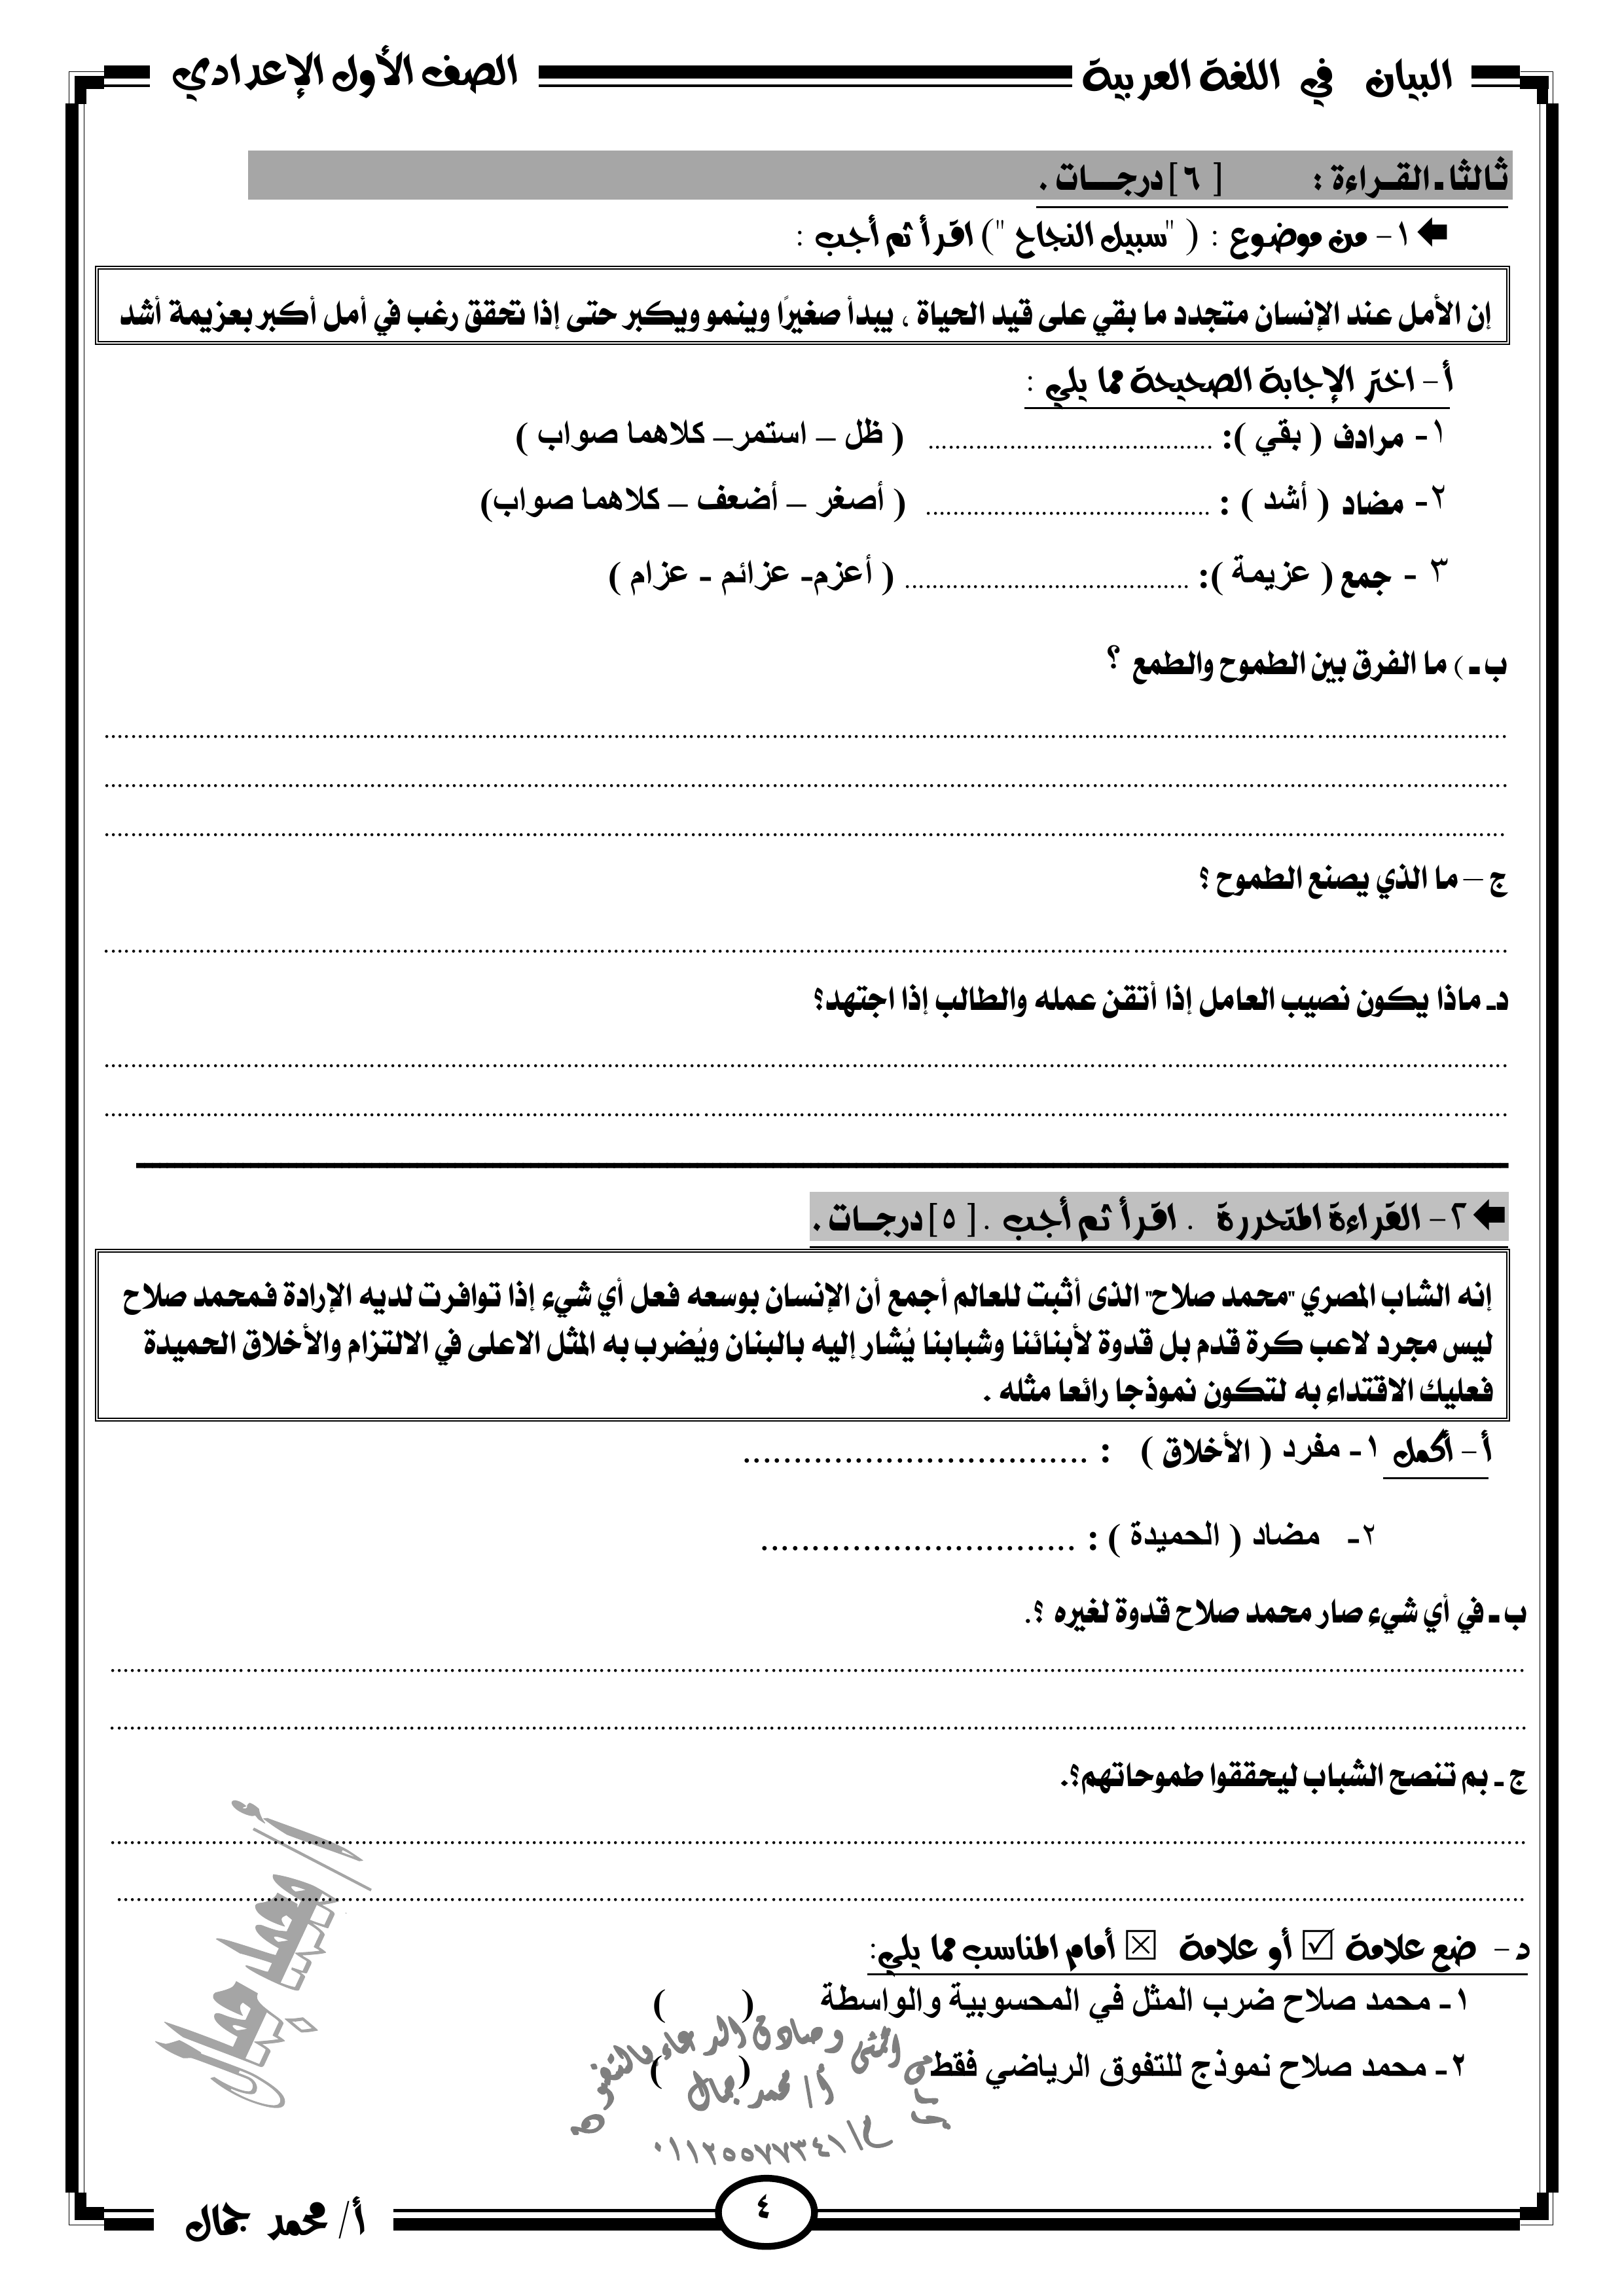 البيان في اللغة العربية الصف الأول الإعدادي
ثالثا ـ القــراءة : [ ٦ ] درجـــات .
١- من موضوع : ( "سبيل النجاح ") اقرأ ثم أجب :
إن الأمل عند الإنسان متجدد ما بقي على قيد الحياة ، يبدأ صغيرًا وينمو ويكبر حتى إذا تحقق رغب في أمل أكبر بعزيمة أشد
أ- اختر الإجابة الصحيحة مما يلي :
١- مرادف ( بقي ): .......................................... ( ظل – استمر– كلاهما صواب )
٢- مضاد ( أشد ) : .......................................... ( أصغر – أضعف – كلاهما صواب)
٣ - جمع ( عزيمة ): .......................................... ( أعزم- عزائم - عزام )
ب ـ ) ما الفرق بين الطموح والطمع ؟
ج – ما الذي يصنع الطموح ؟
دـ ماذا يكون نصيب العامل إذا أتقن عمله والطالب إذا اجتهد؟
٢- القراءة المتحررة . اقرأ ثم أجب . [ ٥ ] درجــات .
إنه الشاب المصري "محمد صلاح" الذى أثبت للعالم أجمع أن الإنسان بوسعه فعل أي شيء إذا توافرت لديه الإرادة فمحمد صلاح
ليس مجرد لاعب كرة قدم بل قدوة لأبنائنا وشبابنا يُشار إليه بالبنان ويُضرب به المثل الاعلى في الالتزام والأخلاق الحميدة
فعليك الاقتداء به لتكون نموذجا رائعا مثله .
أ- أكمل ١- مفرد ( الأخلاق ) : ..................................
٢- مضاد ( الحميدة ) : ...............................
ب ـ في أي شيء صار محمد صلاح قدوة لغيره ؟.
ج ـ بم تنصح الشباب ليحققوا طموحاتهم؟.
د - ضع علامة ☑ أو علامة ☒ أمام المناسب مما يلي:
١- محمد صلاح ضرب المثل في المحسوبية والواسطة ( )
٢- محمد صلاح نموذج للتفوق الرياضي فقط ( )
وصادق الدعاء بالتفوق
أ/ محمد جمال
م/٠١١٢٥٥٧٧٣٤١
٤
أ/ محمد جمال